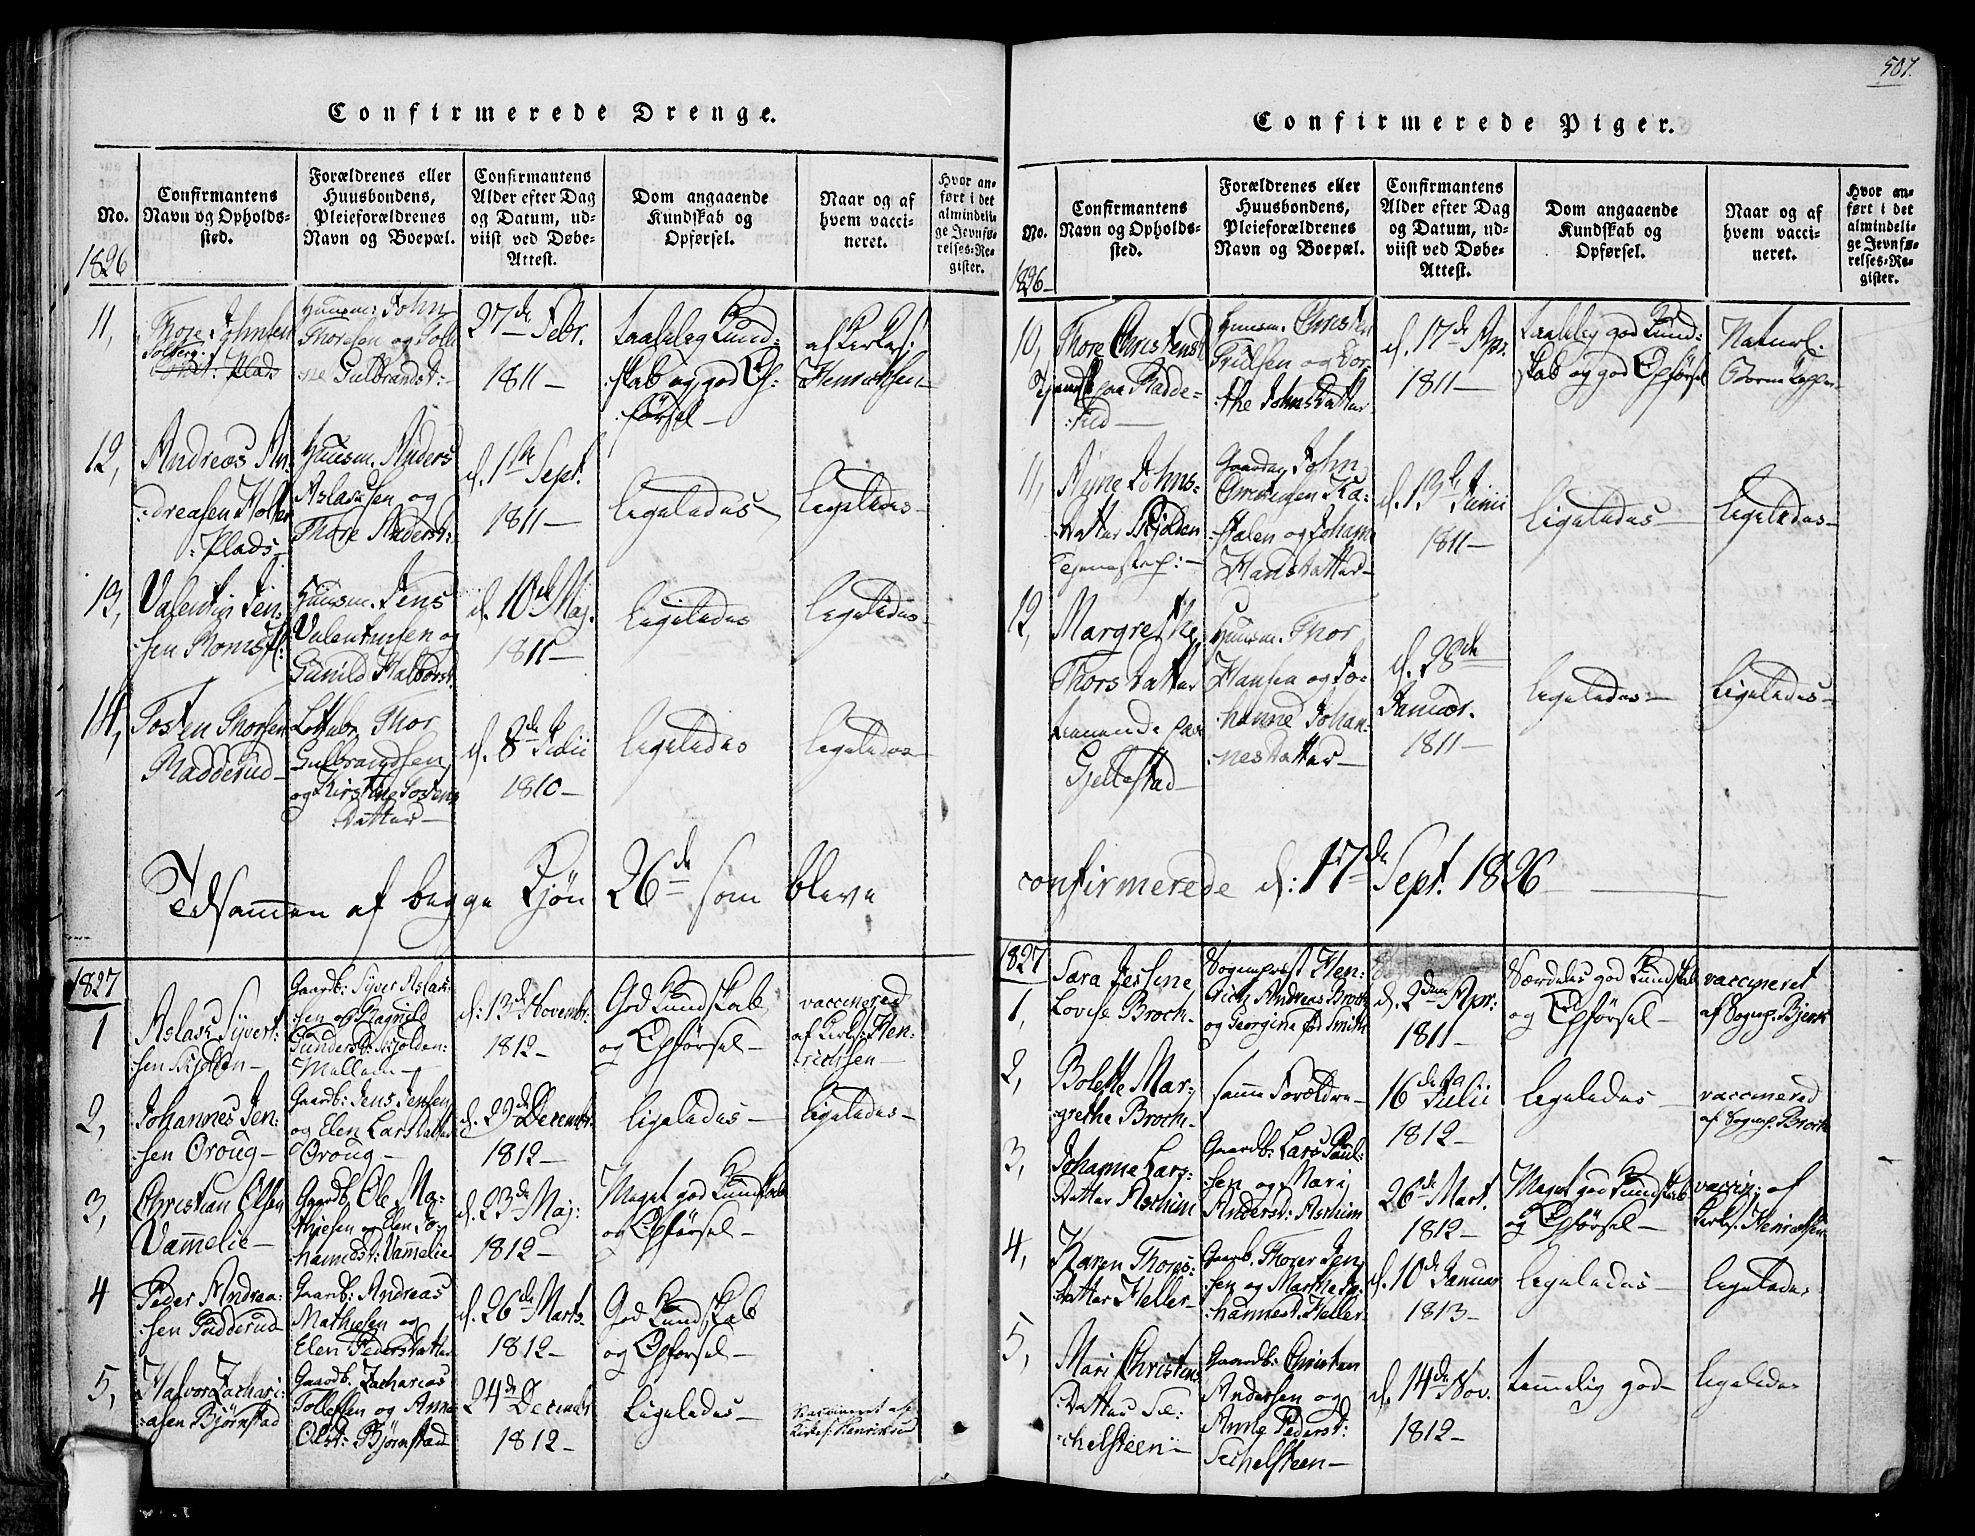 Confirmerede Drenge.
No.
Confirmantens
Navn og Opholds-
sted.
Forældrenes eller
Huusbondens,
Pleieforældrenes
Navn og Boepæl.
Confirmantens
Alder efter Dag
og Datum, ud-
viist ved Døbe-
Attest.
Dom angaaende
Kundskab og
Opførsel.
Naar og af
hvem vacci-
neret.
Hvor an-
ført i det
almindeli-
ge Jevnfø-
relses-Re-
gister.
1826
11,
Thore Johnsen
Solberg
Plads
Huusm: John
Thoresen og
Gulbrandsd:
27de Febr.
1811-
taalelig Kund-
skab og god Op-
førsel-
af Kirkes:
Henrichsen-
12,
Andreas An-
dreasen Holter
Plads-
Huusm. Anders
Aslaksen og
Thore Andersd:
d. 1ste Sept.
1811-
ligeledes-
ligeledes-
13,
Valentin Jen-
sen
Huusm. Jens
Valentinsen og
Gunild Halvorsd.
d. 10de Maj.
1811-
ligeledes
ligeledes-
14,
Tosten Thorsen
Radderud-
Thor
Gulbrandsen
og Kirstine Tostens
Datter-
d. 8de Julii
1810-
ligeledes
ligeledes-
Tilsammen af begge Kjøn 26de som bleve
1827
1
Aslak Syvert-
sen Skjolden-
Gaardb: Syver Aslak-
sen og Ragnild
Gundersd: Skjolden-
Mellem-
d: 13de Novembr.
1812-
God Kundskab
og Opførsel-
vaccinered
af Kirkes: Hen-
richsen-
2,
Johannes Jen-
sen Oroug-
Gaardb: Jens Jensen
og Elen Larsdatter
Oroug-
d. 29de Decembr.
1812-
ligeledes-
ligeledes-
3,
Christian Olsen
Vammelie-
Gaardb. Ole Ma-
thiesen og Elen Jo-
hannesd: Vammelie
d. 23de Maj:
1812-
Meget god Kundskab
og Opførsel-
4
Peder Andrea-
sen Pudderud
Gaardb: Andreas
Mathiesen og
Elen Pedersdatter
d. 26de Marts
1812-
God Kundskab
og Opførsel-
5,
Halvor Zachari-
asen Bjørnstad
Gaardb. Zacharias
Tollefsen og Anne
Olsd: Bjørnstad
24de Decembr
1812-
Ligeledes-
Vaccineret af
Kirkes: Henriksen
507.
Confirmerede Piger.
No.
Confirmantens
Navn og Opholds-
sted.
Forældrenes eller
Huusbondens,
Pleieforældrenes
Navn og Boepæl.
Confirmantens
Alder efter Dag
og Datum, ud-
viist ved Døbe-
Attest.
Dom angaaende
Kundskab og
Opførsel.
Naar og af
hvem vacci-
neret.
Hvor an-
ført i det
almindeli-
ge Jevnfø-
relses-Re-
gister.
1826-
10,
Thore Christensd
Tjenende paa Radde-
rud-
Huusm. Christen
og Dor-
the Johnsdatter
d. 17de Apr.
1811-
taalelig god Kund-
skab og god Opførsel
Naturl:
Børnekopper-
11,
Johns-
datter Skjolden
John
og Johanne
Hansdatter-
d. 13de Junii
1811-
ligeledes-
ligeledes-
12,
Margrethe
Thorsdatter
tienende paa
Gjellestad-
Huusm. Thor
Hansen og Jo-
hanne Johan-
nesdatter-
d. 28de
Januar.
1811-
ligeledes-
ligeledes-
confirmerede d: 17de Sept. 1826
1827
1,
Sara Jessine
Lovise Broch-
Sogneprest Hen-
rich Andreas Broch
og Georgine fød Smith
d. 2den Apr:
1811-
Særdeles god Kundskab
og Opførsel-
vaccineret
af Sognp. Bjerk
2,
Bolette Mar-
grethe Broch-
samme Forældre-
16de Julii
1812-
ligeledes-
vaccinered
af Sognp. Broch
3,
Johanna Lars-
datter Aschim
Gaardb: Lars Poul-
sen og Mari
Andersd: Aschim
26de Mart.
1812-
Meget god Kundskab
og Opførsel-
vaccin; af
Kirkes. Henrichsen
4,
Karen Thors-
datter Heller-
Gaardb. Thorer Jen-
sen og Marthe Jo-
hannesd: Heller-
d. 10de Januar
1813-
ligeledes-
ligeledes
5,
Mari Christens
Datter Se-
chelsteen-
Gaardb: Christen
Andersen og
Anne Pedersd:
Sechelsteen-
d. 14de Nov.
1812-
temmelig god-
ligeledes